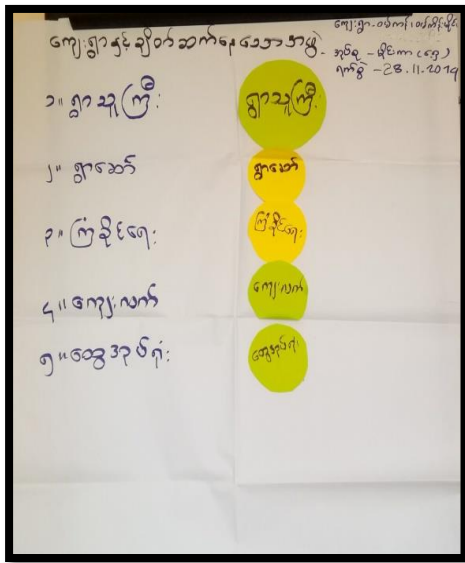 ကျေးရွာနှင့်ချိတ်ဆက်နေသောအဖွဲ့
ကျေးရွာ-
အုပ်စု -
ရက်စွဲ -28.11.2019
၁။ ရွာသူကြီး
ရွာသူကြီး
၂။ ရွာဆော်
ရွာဆော်
၃။ ကြံ့ခိုင်ရေး
ကြံ့ခိုင်ရေး
၄။ ကျေးလက်
ကျေးလက်
၅။ ထွေအုပ်ရုံး
ထွေအုပ်ရုံး